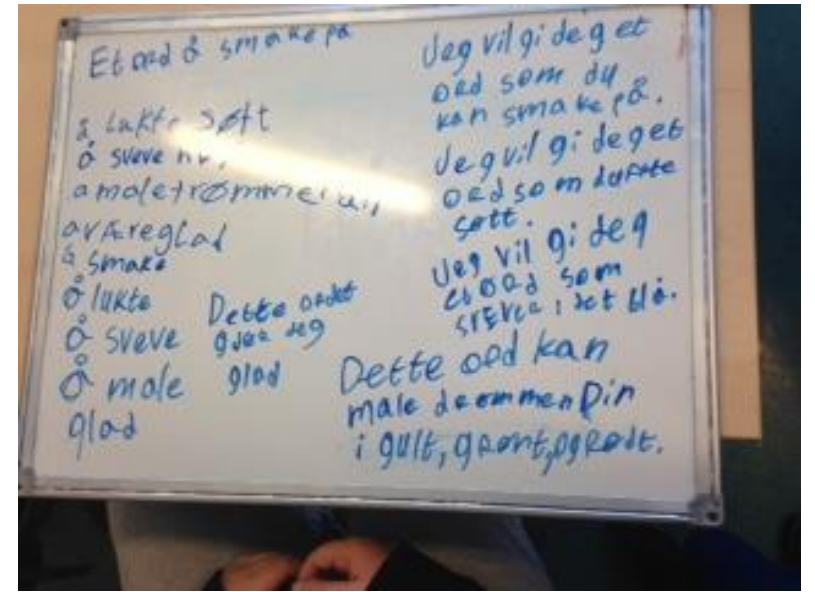 Et ord å smake på
å lukte søtt
å sveve
å male drømmer
aværeglad
å smake
å lukte
å sveve
å male
glad
Dette ordet
gjør deg
glad
Jeg vil gi deg et
ord som du
kan smake på.
Jeg vil gi deg et
ord som dufte
søtt.
Jeg vil gi deg
et ord som
svever i det blå.
Dette ord kan
male drømmen Din
i gult, grønt, og Rødt.